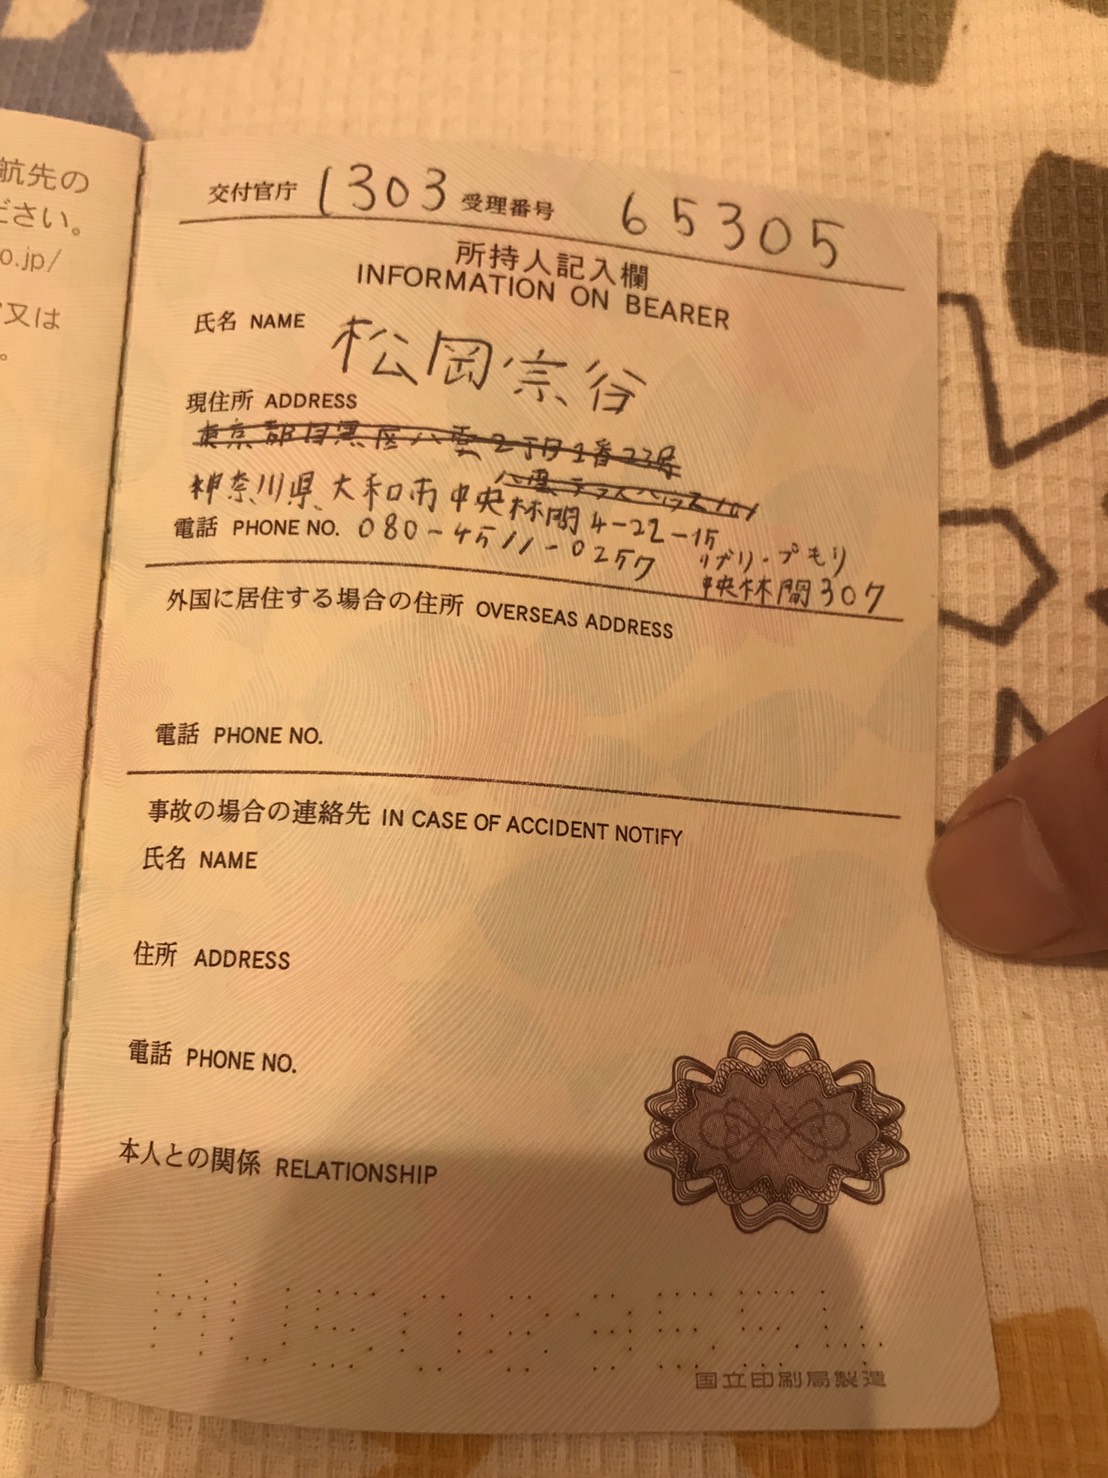 航先の
ださい。
o.jp/
又は
。
交付官庁 1303 受理番号 65305
所持人記入欄
INFORMATION ON BEARER
氏名 NAME 松岡宗谷
現住所 ADDRESS
東京都目黒区八雲2丁目1番23号
八雲テラスハウス101
神奈川県大和市中央林間4-22-15
リブリ・プもリ
中央林間307
電話 PHONE NO. 080-4511-0257
外国に居住する場合の住所 OVERSEAS ADDRESS
電話 PHONE NO.
事故の場合の連絡先 IN CASE OF ACCIDENT NOTIFY
氏名 NAME
住所 ADDRESS
電話 PHONE NO.
本人との関係 RELATIONSHIP
国立印刷局製造